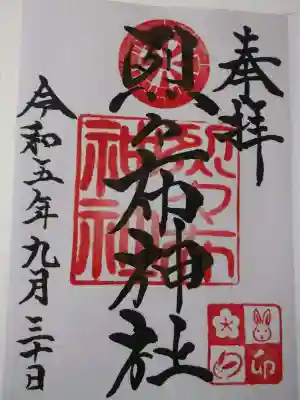 奉拝
烈々布神社
令和五年九月三十日
烈々布
神社
大
印